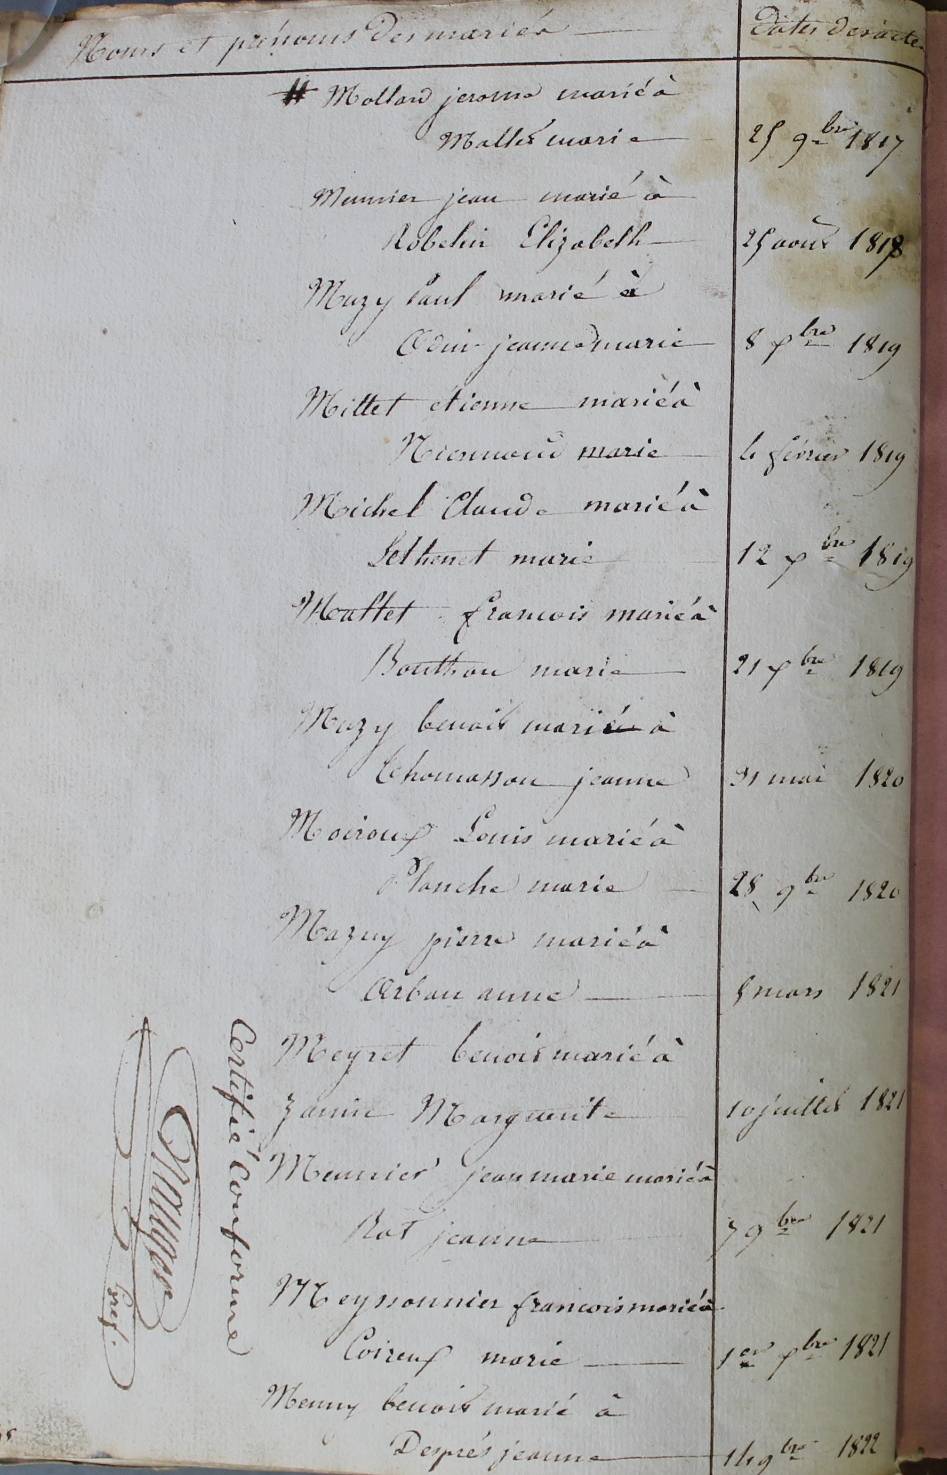 Noms et prénoms des mariés dates des actes
Mollard jerome marié à
Mallet marie 25 9bre 1817
Meunier jean marié à
Robelin Elizabeth 25 août 1818
Mazy Paul marié à
Odin jeanne marie 8 xbre 1819
Millet etienne marié à
marie 4 février 1819
Michel Claude marié à
Lethenet marie 12 xbre 1819
Mallet francois marié à
Bouthou marie 21 xbre 1819
Mazy benoit marié à
Thomasson jeanne 31 mai 1820
Moiroux Louis marié à
Planche marie 28 9bre 1820
Mazuy pierre marié à
Arban anne 8 mars 1821
Meyret benoit marié à
Janin Marguerite 10 juillet 1821
Meunier jean marie marié à
Rat jeanne 7 9bre 1821
Meyssonnier francois marié à
Coireux marie 1er xbre 1821
Menny benoit marié à
Després jeanne 14 9bre 1822
Certifié Conforme
gref.